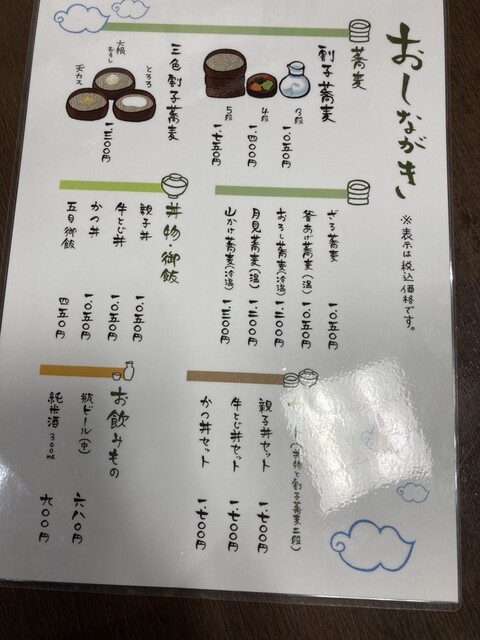 おしながき
※表示は税込価格です。
蕎麦
割子蕎麦
3段
一、〇五〇円
4段
一、四〇〇円
5段
一、七五〇円
三色割子蕎麦
とろろ
大根おろし
天カス
一、三〇〇円
ざる蕎麦
一、〇五〇円
釜あげ蕎麦(温)
一、〇五〇円
おろし蕎麦(冷温)
一、二〇〇円
月見蕎麦(温)
一、二〇〇円
山かけ蕎麦(冷温)
一、三〇〇円
丼物・御飯
親子丼
一、〇五〇円
牛とじ丼
一、〇五〇円
かつ丼
一、〇五〇円
五目御飯
四五〇円
ト(丼物と割子蕎麦二段)
親子丼セット
一、七〇〇円
牛とじ丼セット
一、七〇〇円
かつ丼セット
一、七〇〇円
お飲みもの
瓶ビール(中)
六八〇円
純米酒 300ml
九〇〇円